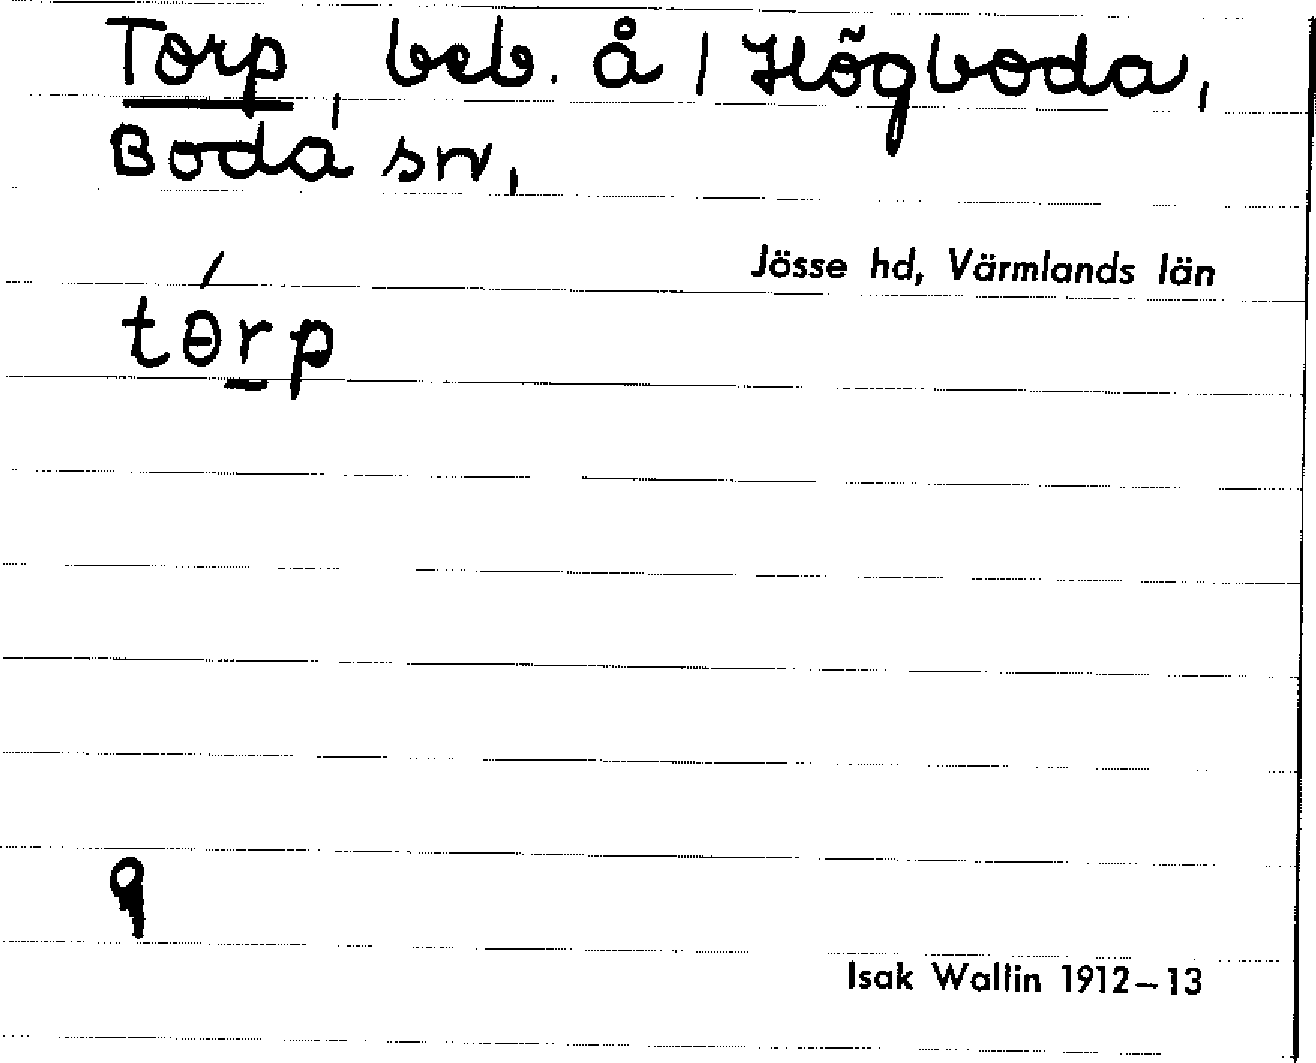 Torp, beb. å 1 Högboda,
Boda sn,
Jösse hd, Värmlands län
tɵ́rp
9
Isak Wallin 1912–13